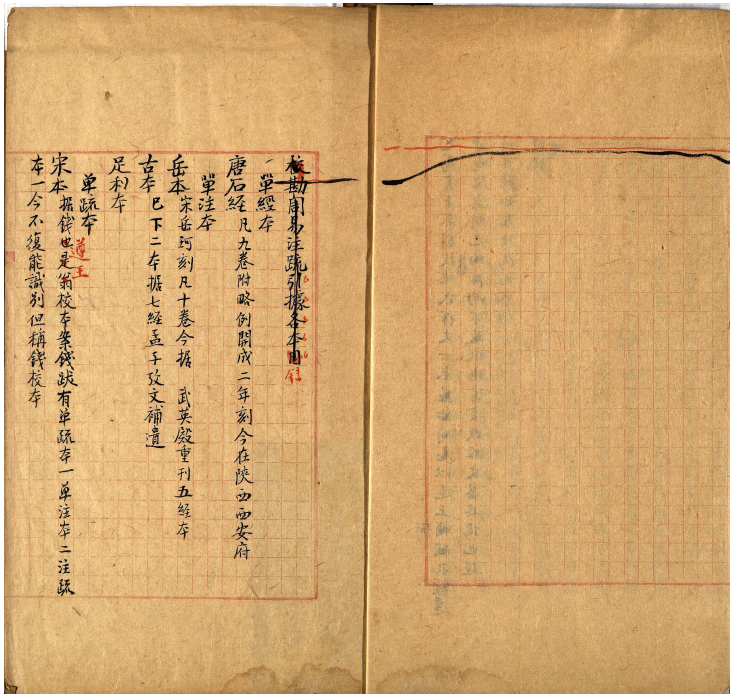 校勘周易注疏引據各本目錄
單經本
唐石經凡九卷附略例開成二年刻今在陝西西安府
單注本
岳本宋岳珂刻凡十卷今据 武英殿重刊五經本
古本已下二本据七經孟子攷文補遺
足利本
单疏本
宋本据錢遵王校本案錢跋有单疏本一单注本二注疏
本一今不復能識别但稱錢校本